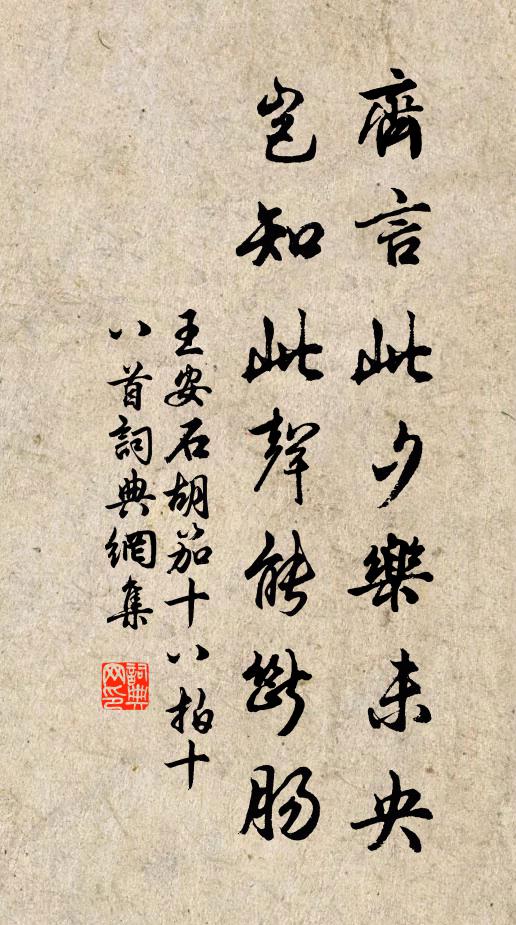 齊言此夕樂未央
豈知此聲能斷腸
王安石胡笳十八拍十
八首詞典網集
詞典
网印